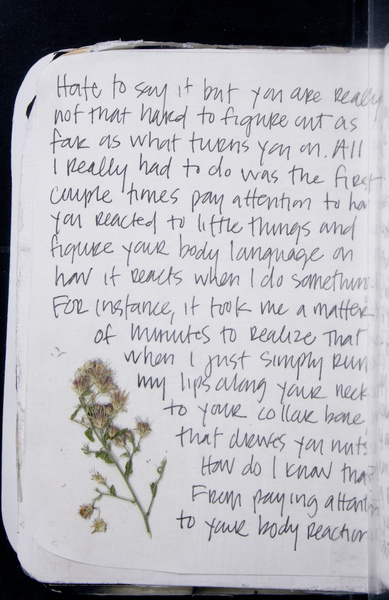 Hate to say it but you are really
not that hard to figure out as
far as what turns you on. All
I really had to do was the first
couple times pay attention to ho
you reacted to little things and
figure your body language on
how it reacts when I do somethin
For instance, it took me a matter
of minutes to realize that
when I just simply run
my lips along your neck
to your collar bone,
that drives you nuts
How do I know tha
From paying attenti
to your body reaction